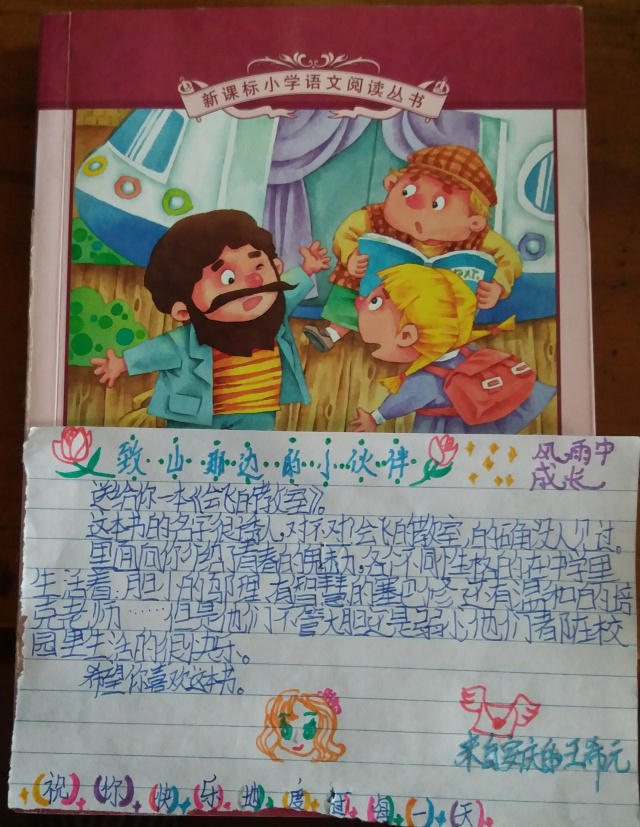 新课标小学语文阅读丛书
致山那边的小伙伴
风雨中
成长
送给你一本《会飞的教室》。
这本书的名字很诱人,对不对?会飞的教室,的确没人见过。
里面向你介绍了青春的勇敢,各个不同性格的在中学里
生活着,胆小的邬理,有智慧的塞巴修,还有温和的培
克老师……但是他们不管大胆还是弱小,他们都在校
园里生活的很快乐。
希望你喜欢这本书。
来自 的王 元
祝你快乐地度过每一天